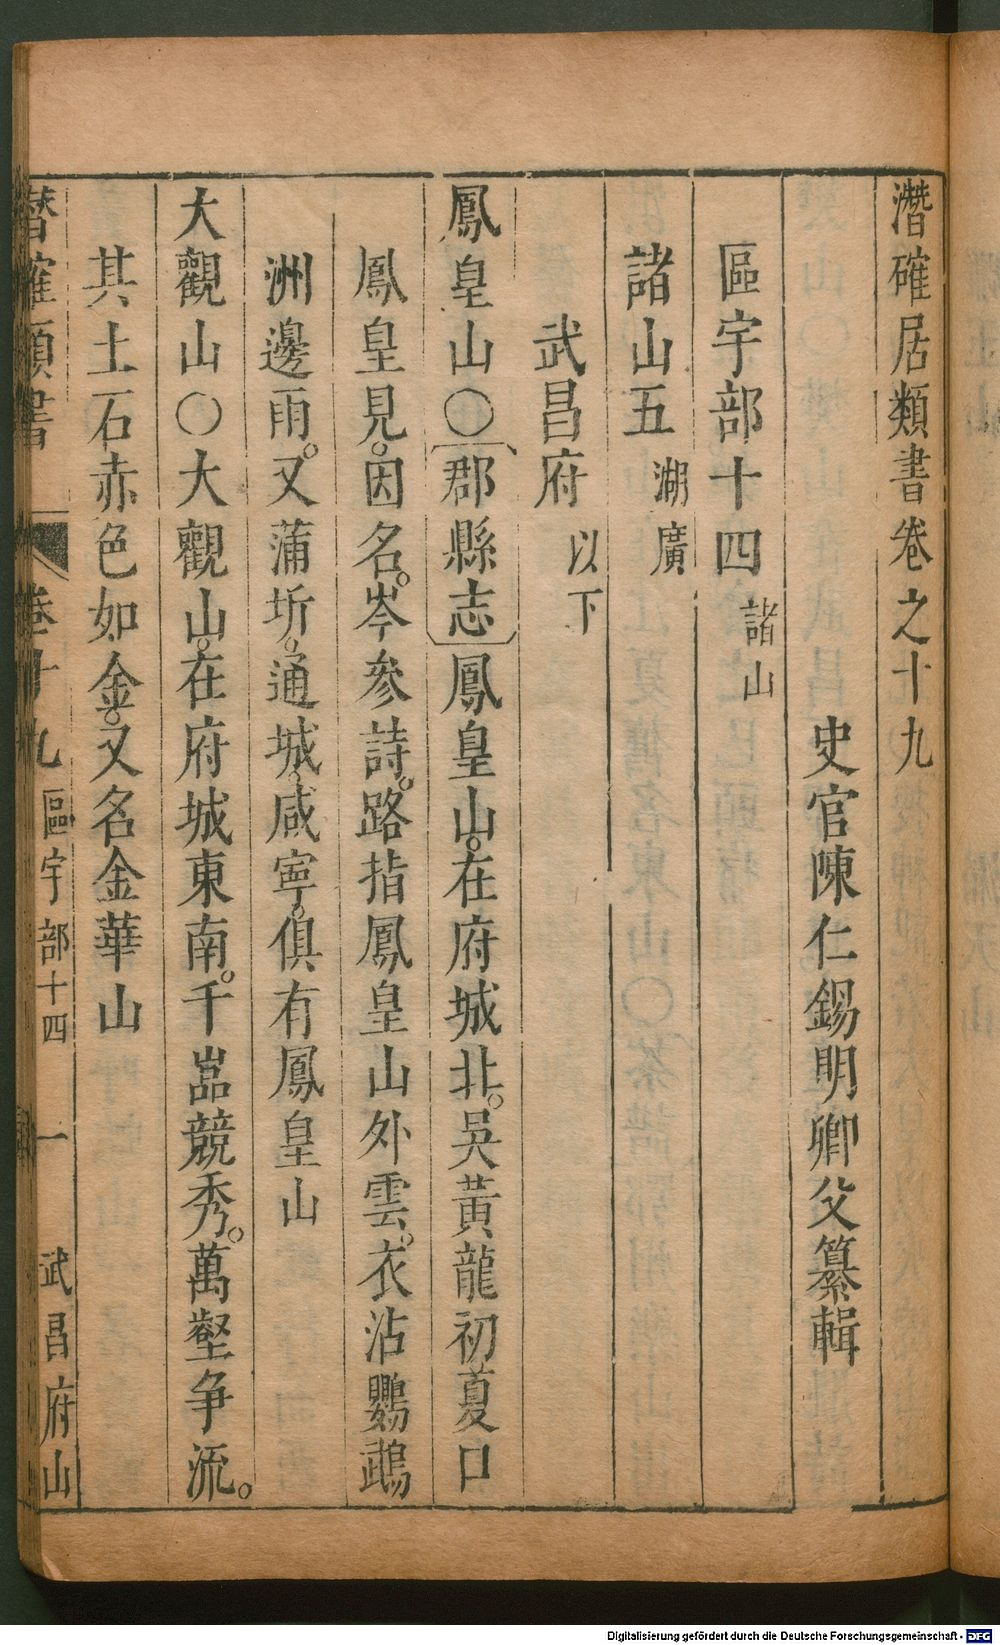 潛確居類書卷之十九
史官陳仁錫明卿父纂輯
區宇部十四 諸山
諸山五 湖廣
武昌府 以下
鳳皇山○郡縣志鳳皇山。在府城北。吳黃龍初。夏口
鳳皇見。因名。岑參詩。路指鳳皇山外雲。衣沾鸚鵡
洲邊雨。又蒲圻。通城。咸寧。俱有鳳皇山
大觀山○大觀山。在府城東南。千嵓競秀。萬壑爭流。
其土石赤色如金。又名金華山
潛確類書 卷十九 區宇部十四 一 武昌府山
Digitalisierung gefördert durch die Deutsche Forschungsgemeinschaft - DFG